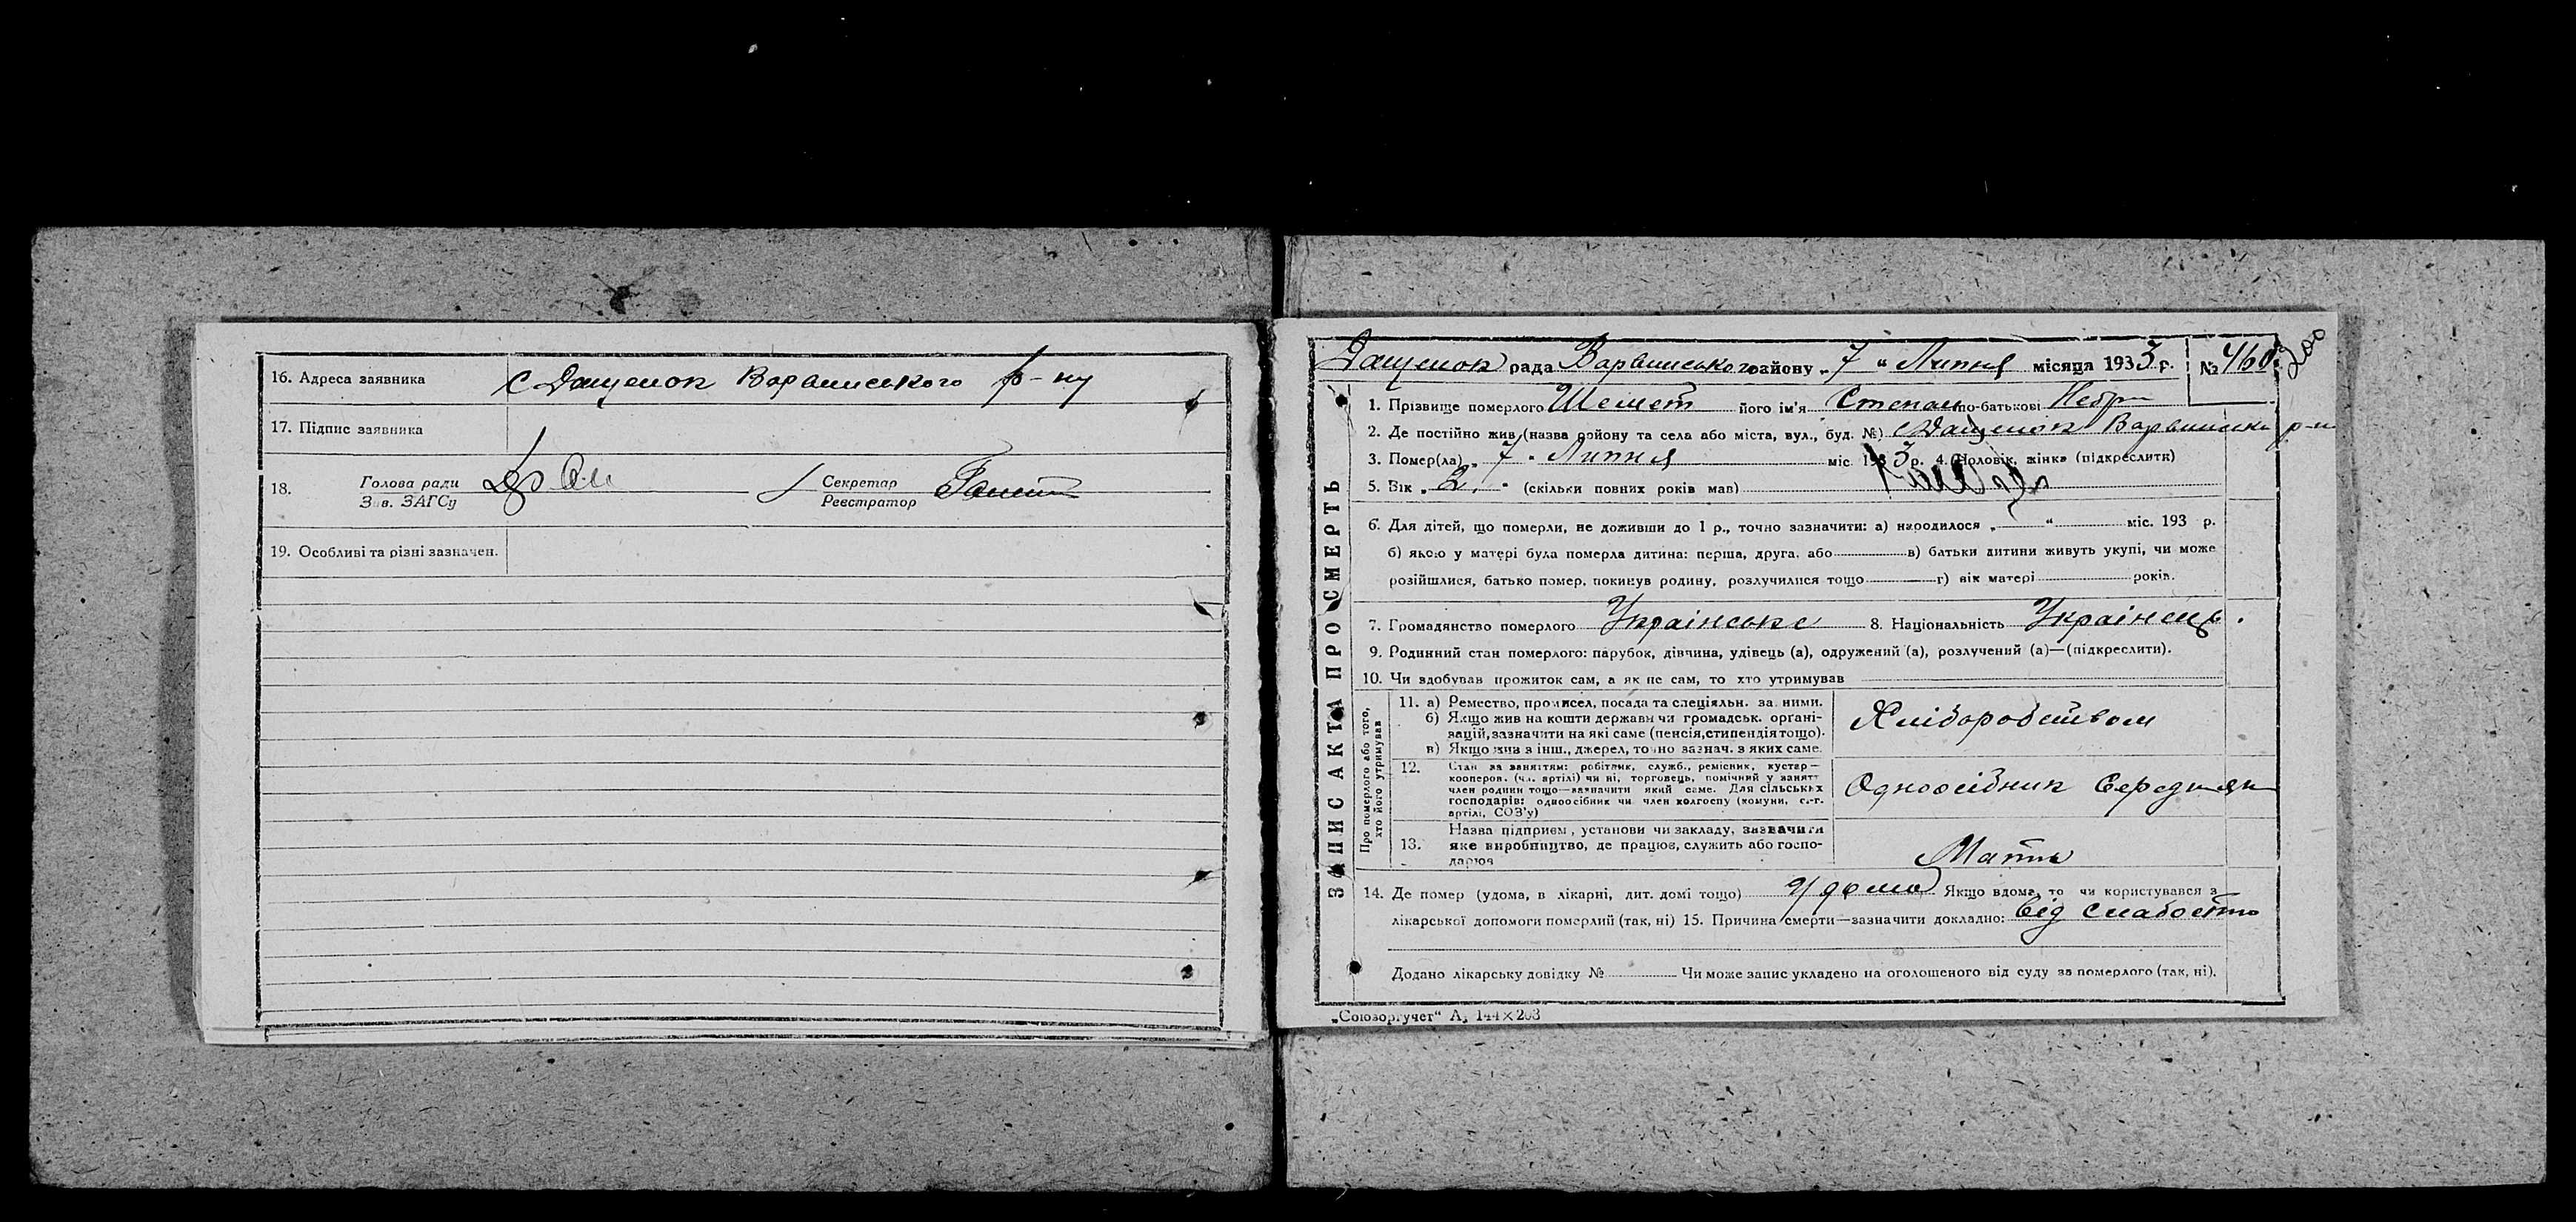 16. Адреса заявника с Дащенок Варвинського р-ну
17. Підпис заявника
18. Голова ради Секретар
Зав. ЗАГСу Реєстратор
19. Особливі та різні зазначен.
ЗАПИС АКТА ПРО СМЕРТЬ
Дащенок рада Варвинського району „7“ Липня місяця 1933 р. № 460
300
1. Прізвище померлого Шемет його ім'я Степан по-батькові
2. Де постійно жив (назва району та села або міста, вул., буд. №) с Дащенок Варвинськ р-н
3. Помер(ла) „7“ Липня міс. 1933 р. 4. Чоловік, жінка (підкреслити)
5. Вік „2“ (скільки повних років мав)
6. Для дітей, що померли, не доживши до 1 р., точно зазначити: а) народилося „ “ міс. 193 р.
б) якою у матері була померла дитина: перша, друга, або в) батьки дитини живуть укупі, чи може
розійшлися, батько помер, покинув родину, розлучилися тощо г) вік матері років.
7. Громадянство померлого Українське 8. Національність Українець
9. Родинний стан померлого: парубок, дівчина, удівець (а), одружений (а), розлучений (а)—(підкреслити).
10. Чи здобував прожиток сам, а як не сам, то хто утримував
Про померлого або того,
хто його утримував
11. а) Ремество, промисел, посада та спеціяльн. за ними.
б) Якщо жив на кошти держави чи громадськ. органі-
зацій, зазначити на які саме (пенсія, стипендія тощо).
в) Якщо жив з інш., джерел, точно зазнач. з яких саме.
Хліборобством
12. Стан за заняттям: робітник, служб., ремісник, кустар—
кооперов. (чл. артілі) чи ні, торговець, помічний у занятт
член родини тощо—зазначити який саме. Для сільських
господарів: одноосібник чи член колгоспу (комуни, с.-г.
артілі, СОЗ'у)
Одноосібник Середняк
13. Назва підприєм., установи чи закладу, зазначити
яке виробництво, де працює, служить або госпо-
дарює
Мати
14. Де помер (удома, в лікарні, дит. домі тощо) Удома Якщо вдома, то чи користувався з
лікарської допомоги померлий (так, ні) 15. Причина смерти—зазначити докладно: Від слабости
Додано лікарську довідку № Чи може запис укладено на оголошеного від суду за померлого (так, ні).
„Союзоргучет“ А₅ 144×203